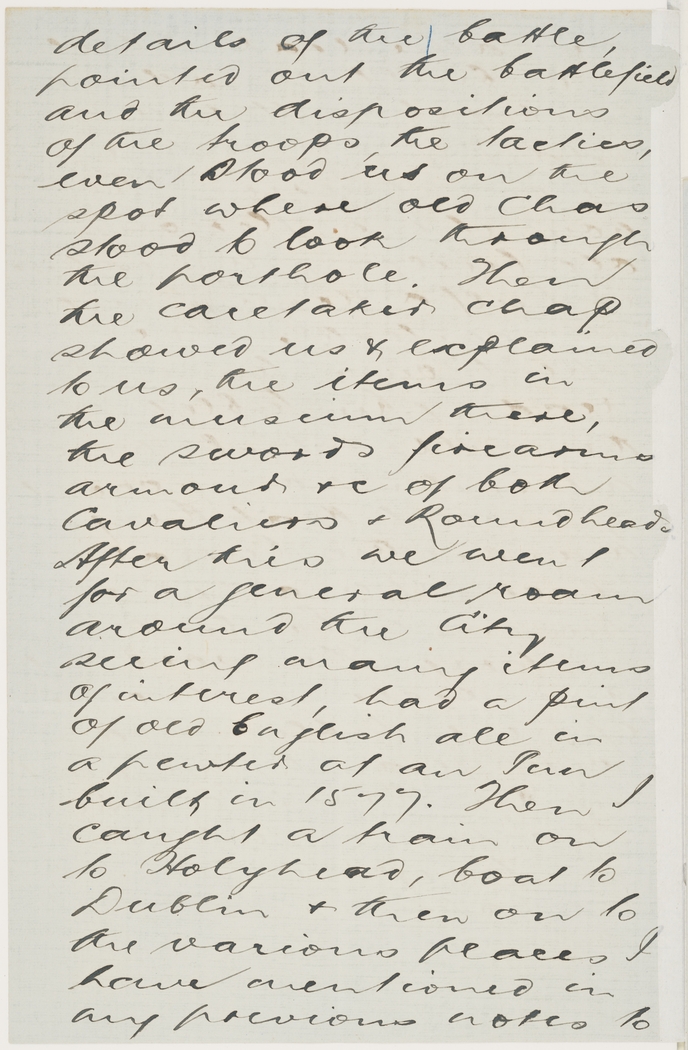 details of the battle,
pointed out the battlefield
and the dispositions
of the troops, the tactics,
even stood us on the
spot where old Chas
stood to look through
the porthole. Then
the caretaker chap
showed us & explained
to us, the items in
the museum there,
the swords firearms
armour &c of both
Cavaliers & Roundheads.
After this we went
for a general roam
around the City
seeing many items
of interest, had a pint
of old English ale in
a pewter at an Inn
built in 1577. Then I
caught a train on
to Holyhead, boat to
Dublin & then on to
the various places I
have mentioned in
my previous notes to